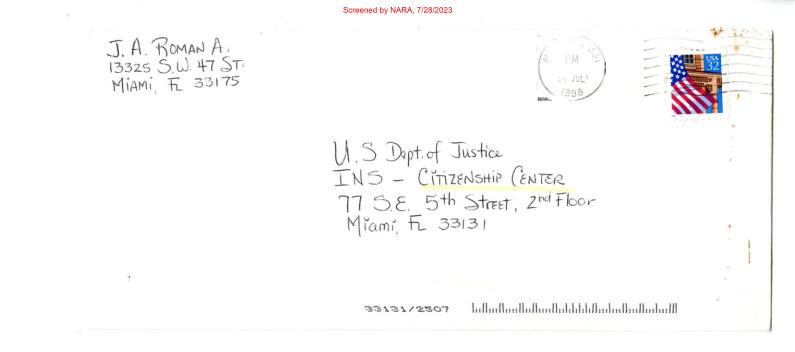 Screened by NARA, 7/28/2023
J. A. ROMAN A.
13325 S.W. 47 ST.
MIAMI, FL 33175
PM
JUL
1998
USA
32
U.S Dept. of Justice
INS - CITIZENSHIP CENTER
77 S.E. 5th STREET, 2nd Floor
Miami, FL 33131
33131/2507